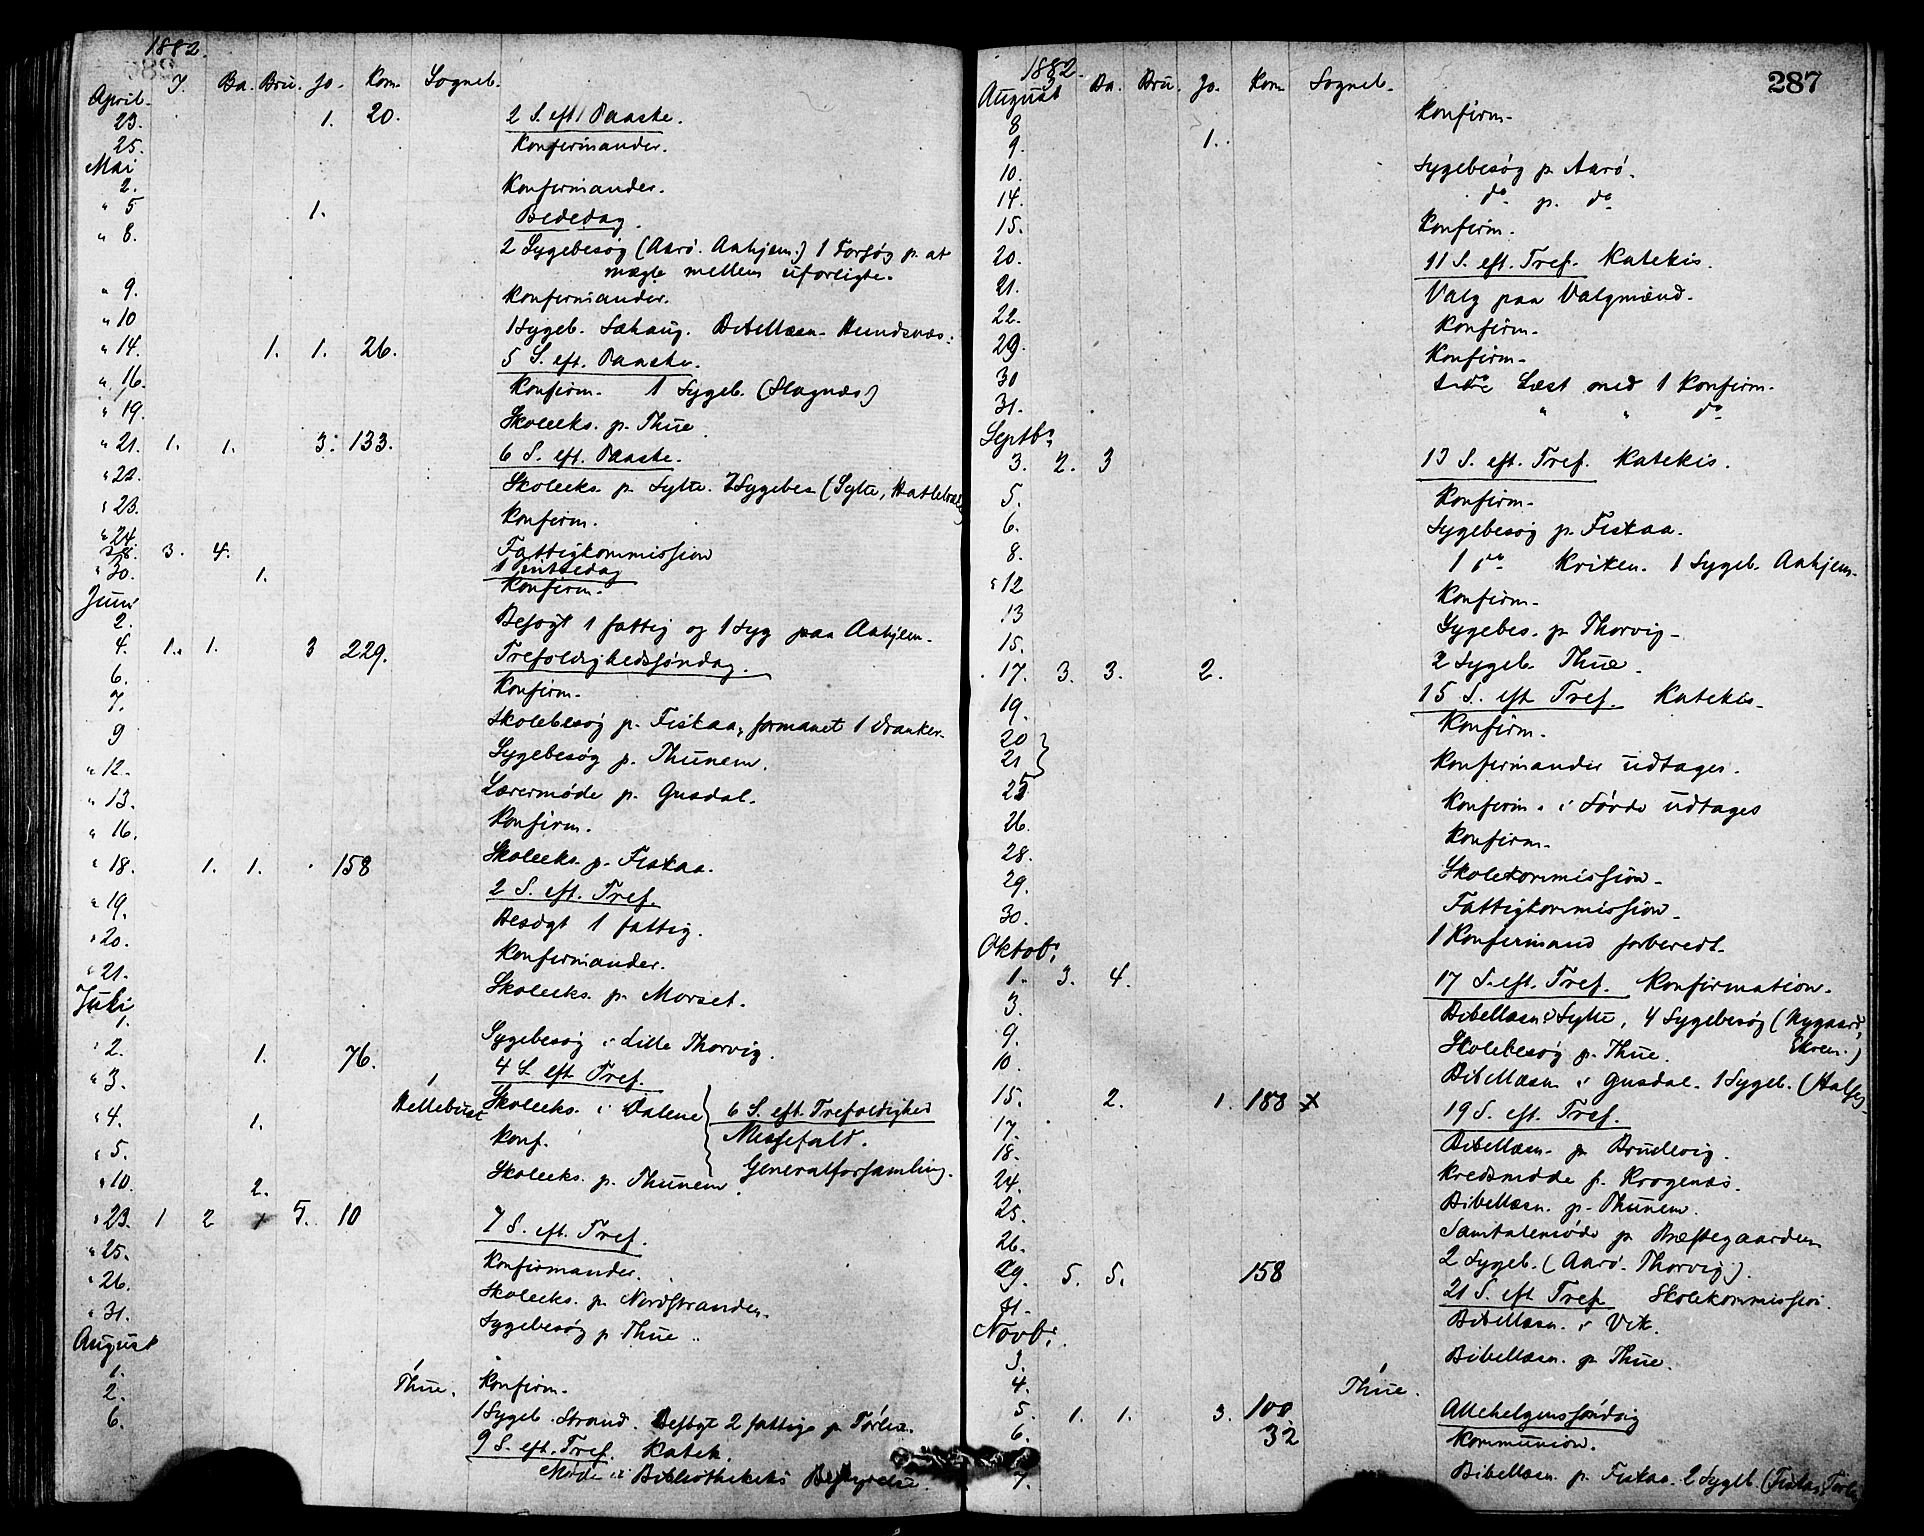 1882.
I. Ba. Bru. Jo. Kom. Sogneb.
April.
23. 1. 20. 2 S. eft. Paaske.
25. Konfirmander.
Mai
2. Konfirmander.
" 5 1. Bededag.
" 8. 2 Sygebesøg (Aarø. Aahjem.) 1 Forsøg p. at
mægle mellem uforligte.
" 9. Konfirmander.
" 10 1 Sygeb. Bibellæsn.
" 14. 1. 1. 26. 5 S. eft. Paaske.
" 16. Konfirm. 1 Sygeb. (Slagnæs)
" 19. Skoleeks. p. Thue.
" 21. 1. 1. 3. 133. 6 S. eft. Paaske.
" 22. Skoleeks. p. Sylte. 2 Sygebes (Sylte,
" 23. Konfirm.
" 24. Fattigkommission
28. 3. 4. 1 Pintsedag
" 30. 1. Konfirm.
Juni
2. Besøgt 1 fattig og 1 syg paa Aahjem.
4. 1. 1. 3 229. Trefoldighedssøndag.
6. Konfirm.
7. Skolebesøg p. Fiskaa, formanet 1 Dranker.
9 Sygebesøg p. Thunem.
" 12. Lærermøde p. Gusdal.
" 13. Konfirm.
" 16. Skoleeks. p. Fiskaa.
" 18. 1. 1. 158 2 S. eft. Tref.
" 19. Besøgt 1 fattig.
" 20. Konfirmander.
" 21. Skoleeks. p. Morset.
Juli
1. Sygebesøg i Lille Thorvig.
" 2. 1. 76. 4 S. eft Tref.
" 3. Hellebust Skoleeks. i Dalene
" 4. 1. Konf.
" 5. Skoleeks. p. Thunem.
" 10. 2. 6 S. eft. Trefoldighed
Messefald.
Generalforsamling.
" 23. 1 2 5. 10 7 S. eft. Tref.
" 25. Konfirmander.
" 26. Skoleeks. p. Nordstranden.
" 31. Sygebesøg p Thue.
August
1. Thue. Konfirm.
2. 1 Sygeb. Strand. Besøgt 2 fattige p Tørla.
6. 9 S. eft. Tref. Katek.
Møde i Bibliothekets Bestyrelse.
287
1882.
August Da. Bru. Jo. Kom. Sogneb.
8 Konfirm.
9. 1.
10. Sygebesøg p. Aarø.
14. do p. do
15. Konfirm.
20. 11 S. eft. Tref. Katekis.
21. Valg paa Valgmænd.
22. Konfirm.
29. Konfirm.
30 Læst med 1 Konfirm.
31. " " do
Septbr
3. 2. 3 13 S. eft. Tref. Katekis.
5. Konfirm.
6. Sygebesøg p. Fiskaa.
8. 1 do Kriken. 1 Sygeb. Aahjem.
" 12 Konfirm.
13 Sygebes. p. Thorvig.
15. 2 Sygeb. Thue.
17. 3. 3. 2. 15 S. eft Tref. Katekis.
19. Konfirm.
20
21 Konfirmander udtages.
25 Konfirm. i Førde udtages
26. Konfirm.
28. Skolekommission.
29. Fattigkommission.
30. 1 Konfirmand forberedt.
Oktob.
1. 3. 4. 17 S. eft. Tref. Konfirmation.
3. Bibellæsn. i Sylte, 4 Sygebesøg (Nygaard,
Ekrem.)
9. Skolebesøg p. Thue.
10. Bibellæsn i Gusdal. 1 Sygeb.
15. 2. 1. 188 x 19 S. eft. Tref.
17. Bibellæsn. p. Brudevig.
18. Kredsmøde p. Krogenæs.
24. Bibellæsn. p. Thunem.
25. Samtalemøde p. Præstegaarden
26. 2 Sygeb. (Aarø. Thorvig).
29. 5. 5. 158 21 S. eft Tref. Skolekommission.
31. Bibellæsn. i Vik.
Novb.
3. Bibellæsn. p. Thue.
4. Thue.
5. 1. 1. 3. 100 Allehelgenssøndag
6. 32 Kommunion.
7. Bibellæsn. p. Fiskaa. 2 Sygeb. (Fiskaa,